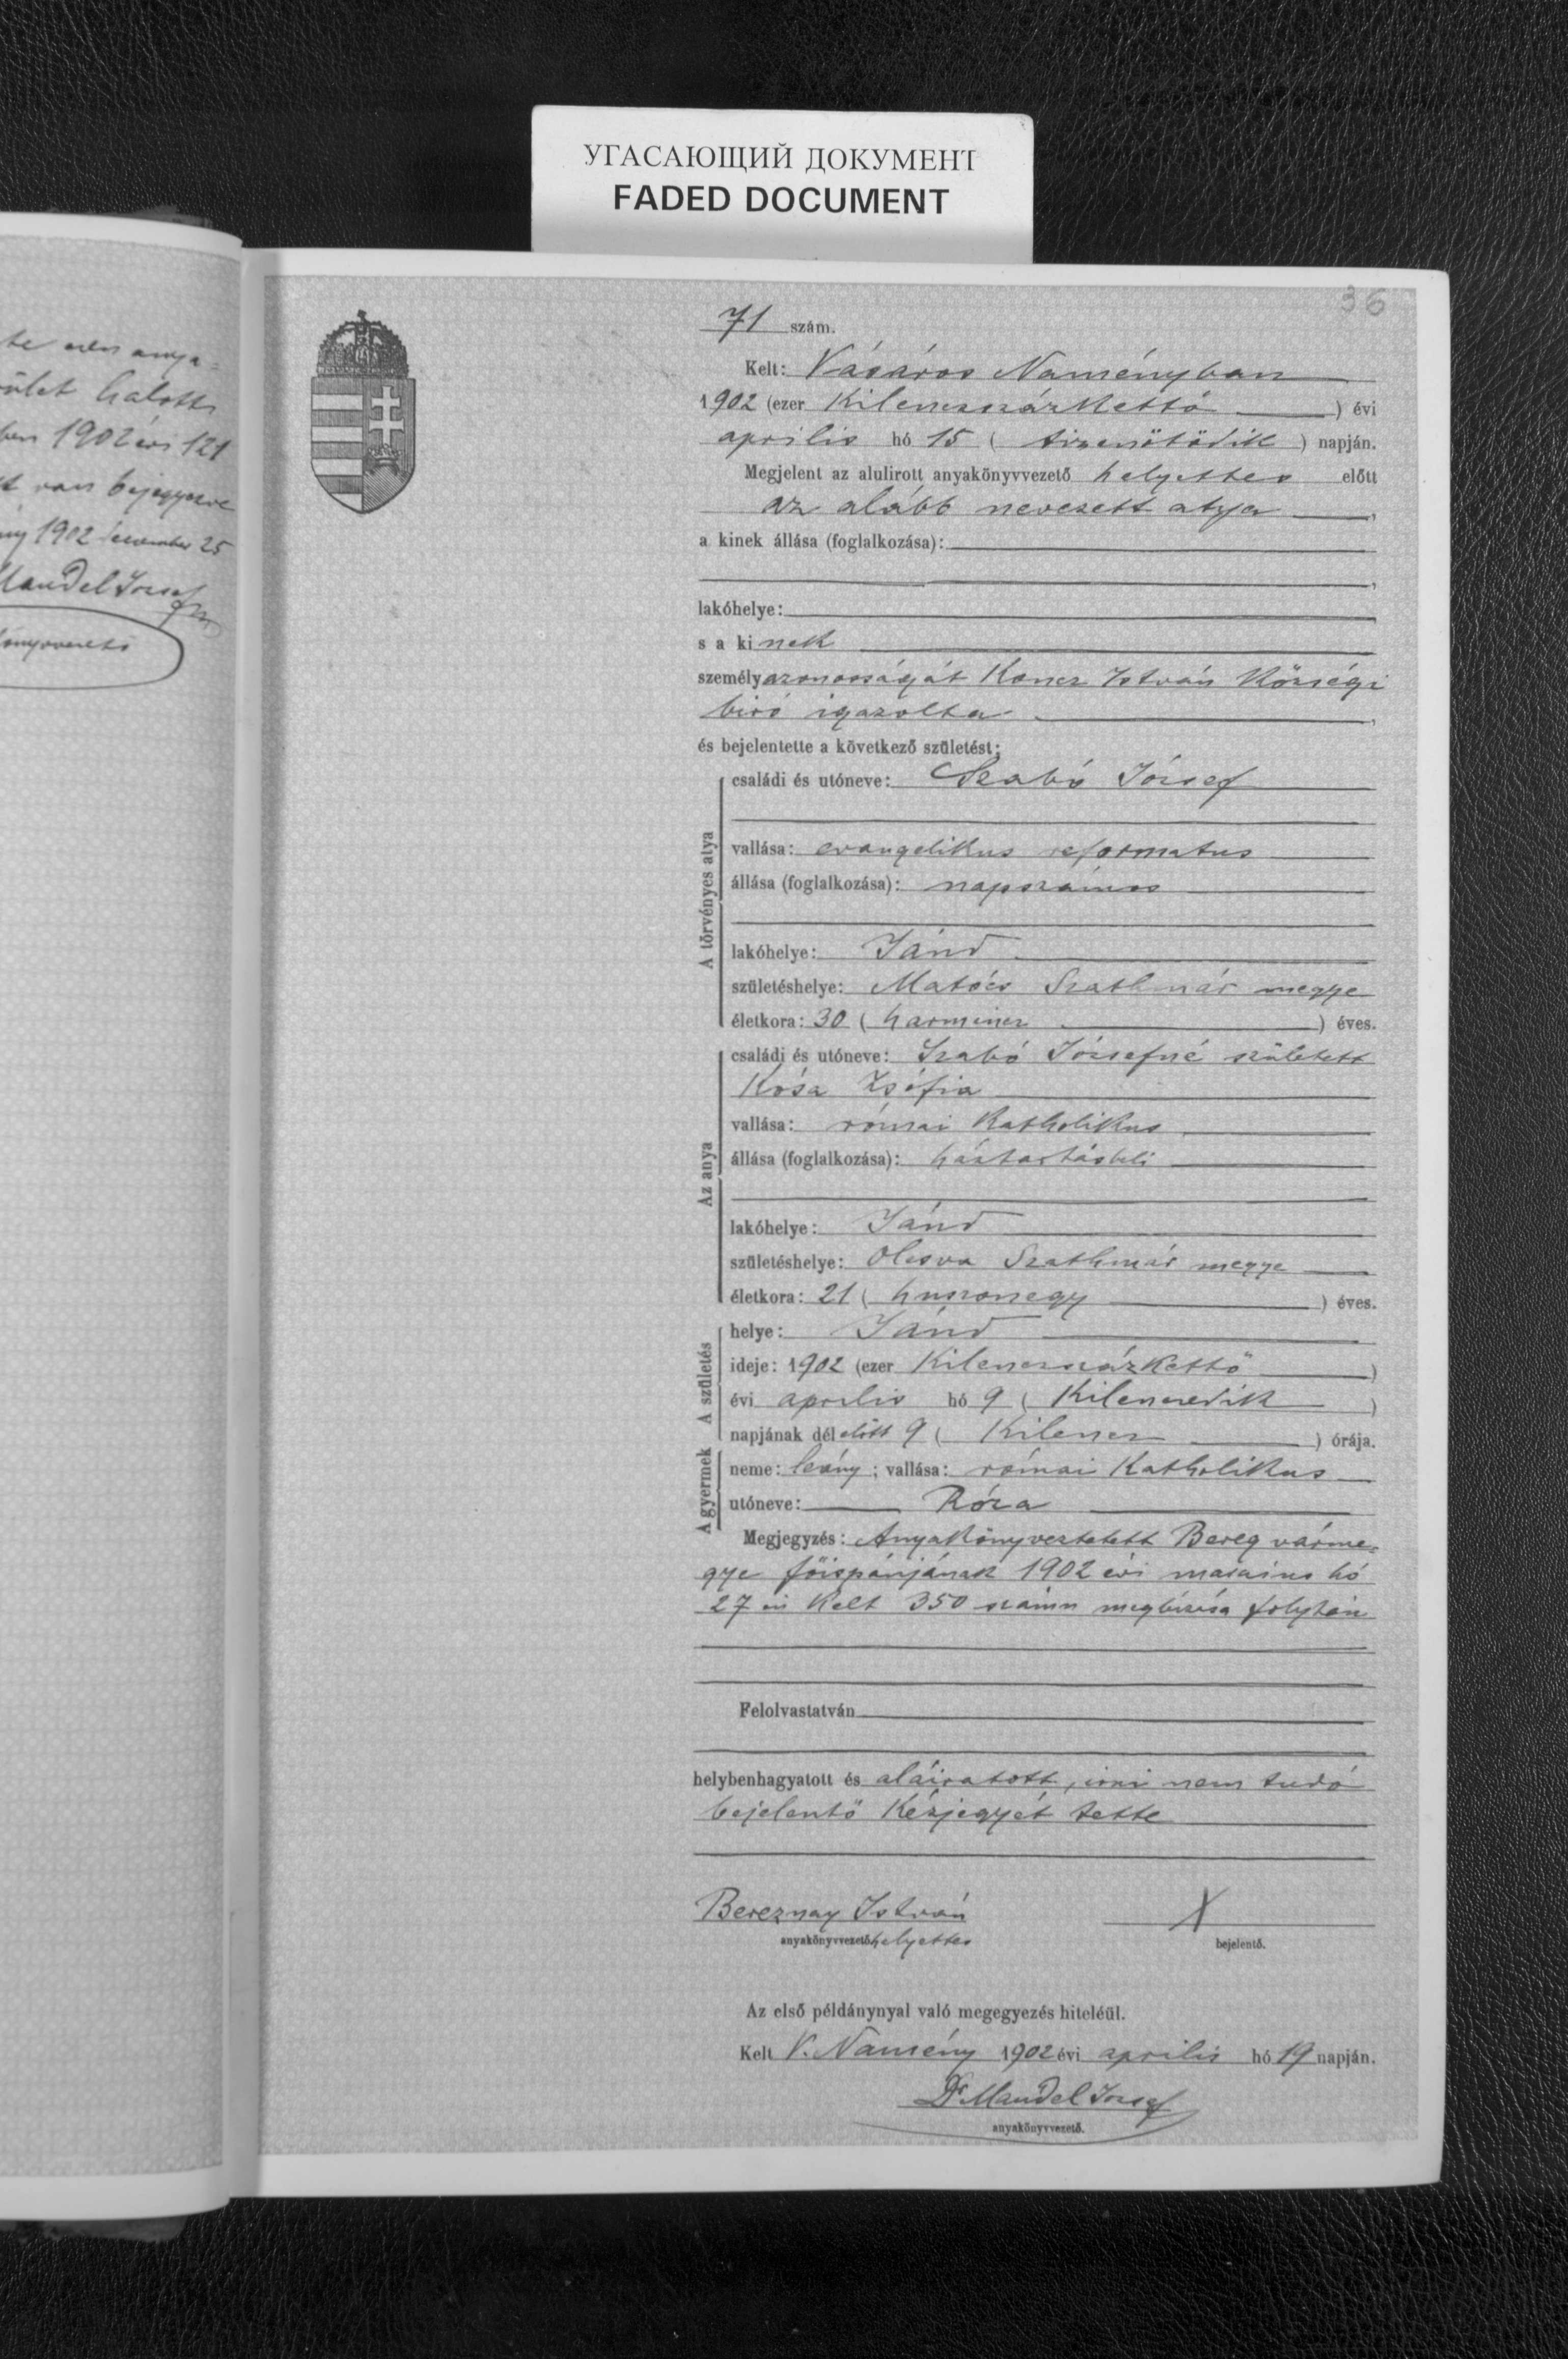 УГАСАЮЩИЙ ДОКУМЕНТ
FADED DOCUMENT
36
halotti
ben 1902 évi 121
van bejegyezve
1902 december 25
Mandel József
71 szám.
Kelt: Vásáros Naményban
1902 (ezer kilenczszázkettő) évi
aprilis hó 15 (tizenötödik) napján.
Megjelent az alulirott anyakönyvvezető helyettes előtt
az alább nevezett atya,
a kinek állása (foglalkozása):
,
lakóhelye:
s a kinek
személyazonosságát Koncz István községi
biró igazolta,
és bejelentette a következő születést:
A törvényes atya
családi és utóneve: Szabó József
vallása: evangelikus reformatus
állása (foglalkozása): napszámos
lakóhelye: Jánd
születéshelye: Matócs Szathmár megye
életkora: 30 (harmincz) éves.
Az anya
családi és utóneve: Szabó Józsefné született
Kósa Zsófia
vallása: római katholikus
állása (foglalkozása): háztartásbeli
lakóhelye: Jánd
születéshelye: Olcsva Szathmár megye
életkora: 21 (huszonegy) éves.
A születés
helye: Jánd
ideje: 1902 (ezer kilenczszázkettő)
évi aprilis hó 9 (kilenczedik)
napjának dél előtt 9 (kilencz) órája.
A gyermek
neme: leány; vallása: római katholikus
utóneve: Róza
Megjegyzés: Anyakönyveztetett Bereg várme-
gye főispánjának 1902 évi marczius hó
27 én kelt 350 számu megbizása folytán
Felolvastatván
helybenhagyatott és aláiratott, irni nem tudó
bejelentő kézjegyét tette
Bereznay István X
anyakönyvvezető helyettes bejelentő.
Az első példánynyal való megegyezés hiteléül.
Kelt V. Namény 1902 évi aprilis hó 19 napján.
Dr Mandel József
anyakönyvvezető.